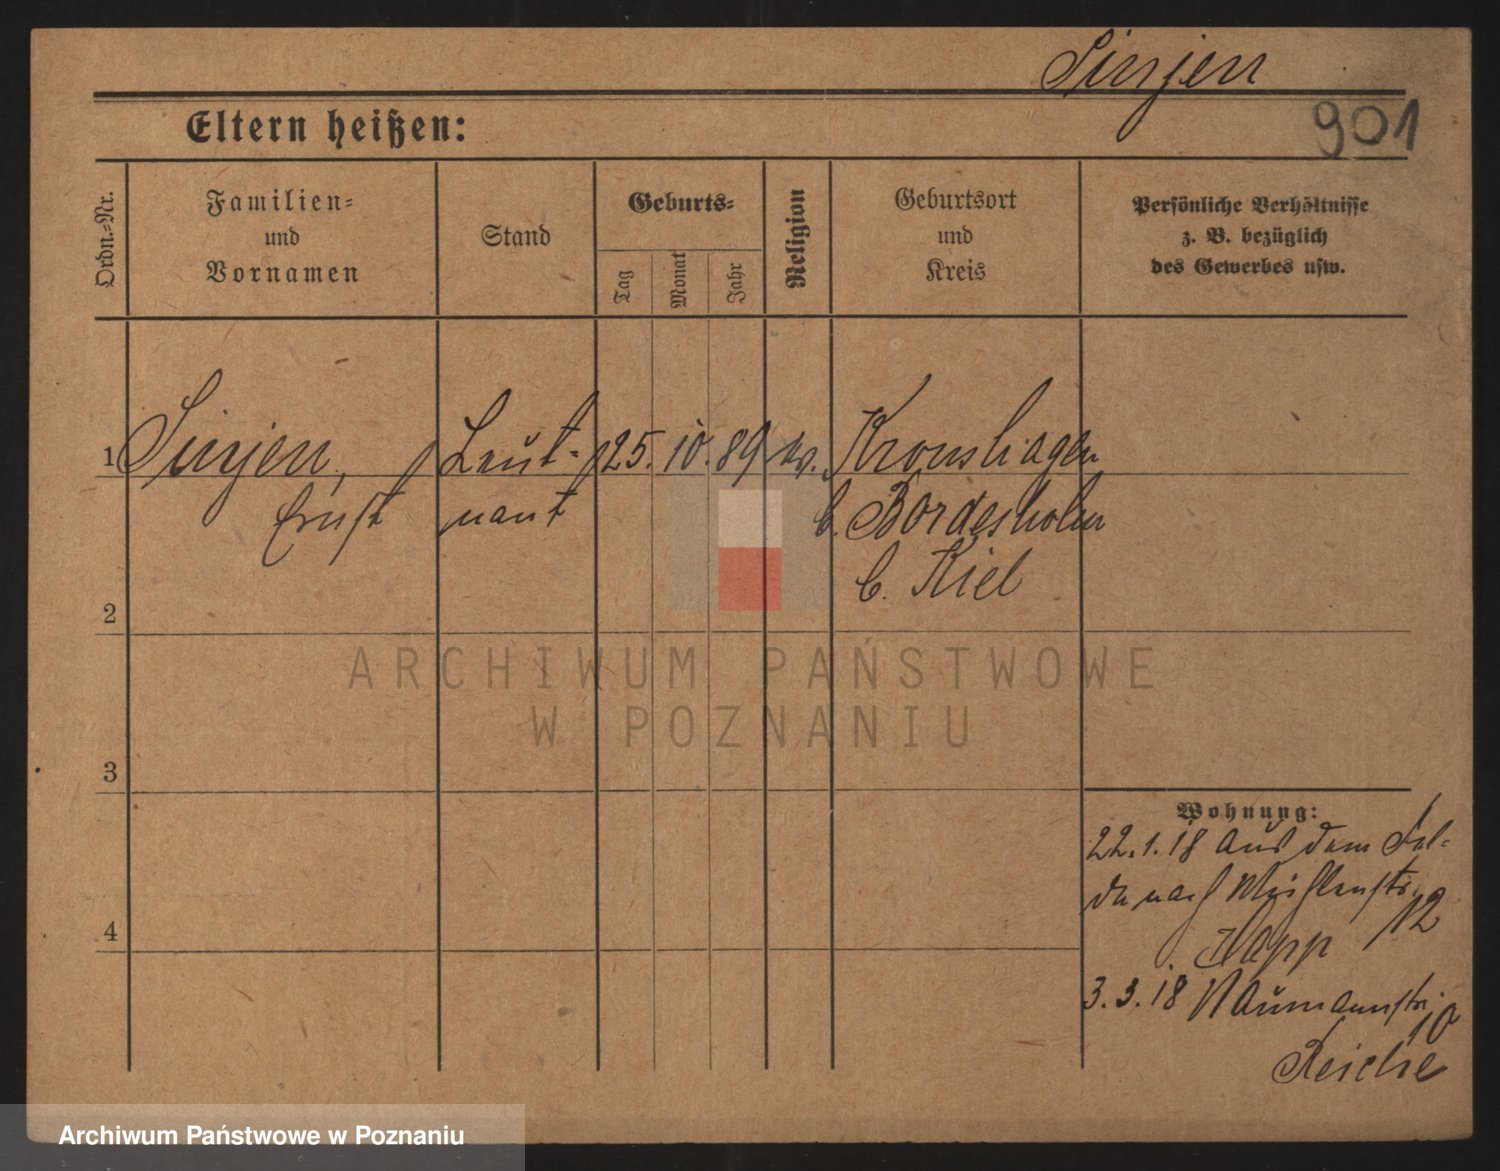 Sinjen
901
Eltern heißen:
Ordn.-Nr.
Familien-
und
Vornamen
Stand
Geburts-
Tag
Monat
Jahr
Religion
Geburtsort
und
Kreis
Persönliche Verhältnisse
z. B. bezüglich
des Gewerbes usw.
1 Sinjen, Leut- 25. 10. 89 ev. Kronshagen
Ernst nant b. Bordesholm
b. Kiel
2
3
4
Wohnung:
22.1.18 aus dem Fel-
de nach Mühlenstr. 12
Happ
3.3.18 Naumannstr. 10
Reiche
ARCHIWUM PAŃSTWOWE
W POZNANIU
Archiwum Państwowe w Poznaniu